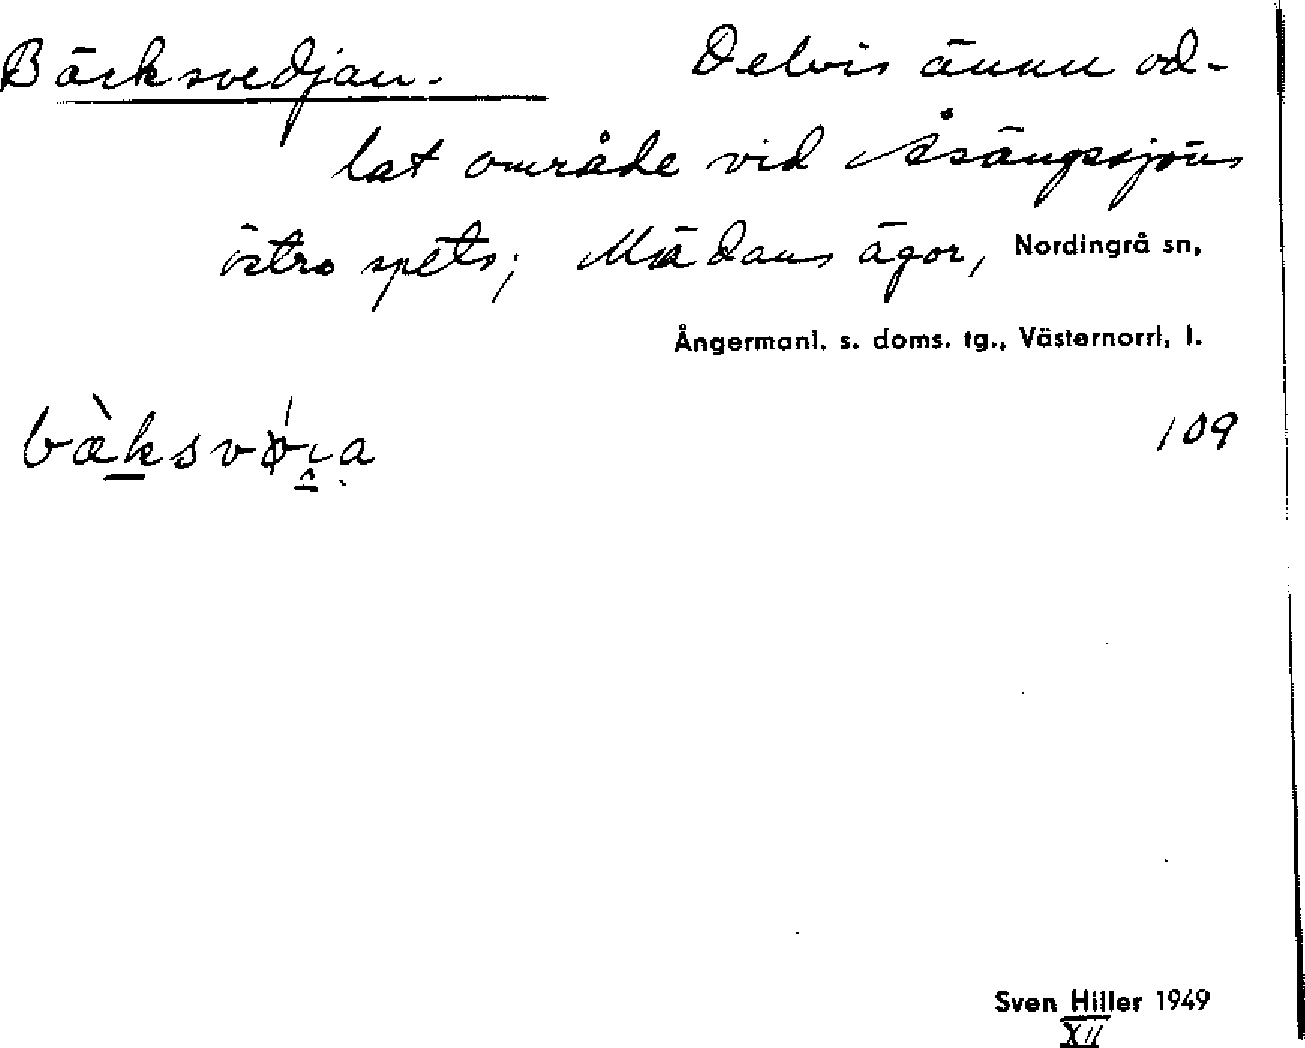 Bäcksvedjan. Delvis ännu od-
lat område vid Åsängssjöns
östra spets; Mädans ägor, Nordingrå sn,
Ångermanl. s. doms. tg., Västernorrl, l.
109
Sven Hiller 1949
XII